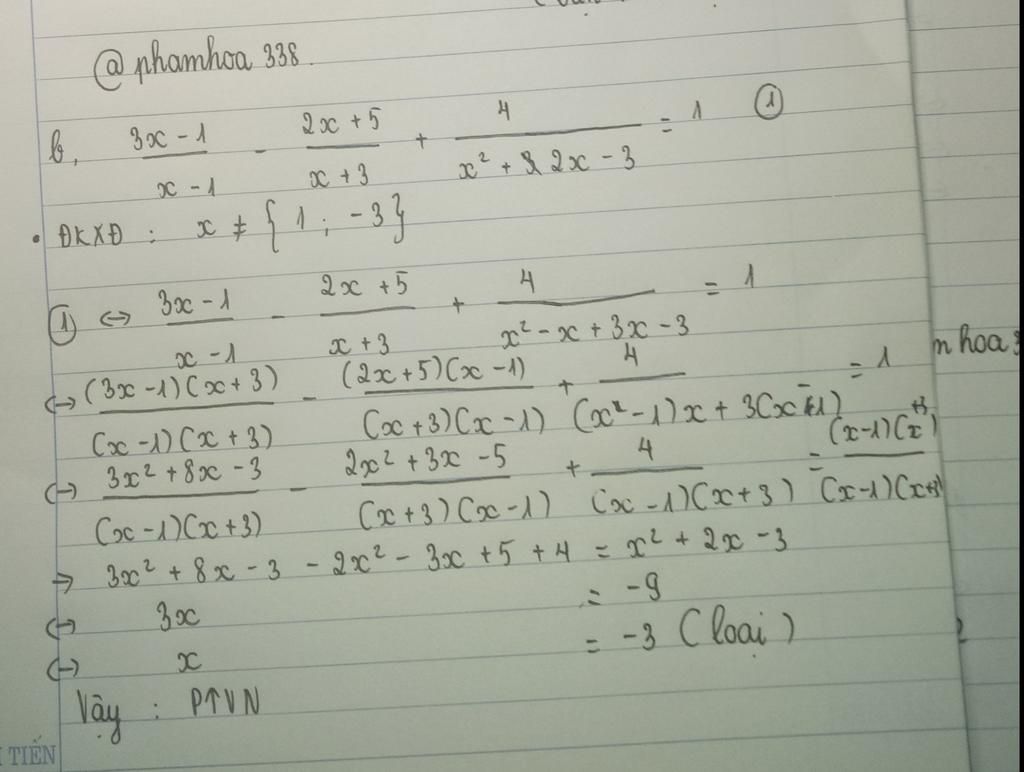 @phamhoa 338.
b, (3x - 1)/(x - 1) - (2x + 5)/(x + 3) + 4/(x² + 2x - 3) = 1 ①
• ĐKXĐ : x ≠ { 1 ; -3 }
① ↔ (3x - 1)/(x - 1) - (2x + 5)/(x + 3) + 4/(x² - x + 3x - 3) = 1
↔ (3x - 1)(x + 3)/(x - 1)(x + 3) - (2x + 5)(x - 1)/(x + 3)(x - 1) + 4/(x - 1)x + 3(x - 1) = 1
↔ (3x² + 8x - 3)/(x - 1)(x + 3) - (2x² + 3x - 5)/(x + 3)(x - 1) + 4/(x - 1)(x + 3) = (x - 1)(x + 3)/(x - 1)(x + 3)
→ 3x² + 8x - 3 - 2x² - 3x + 5 + 4 = x² + 2x - 3
↔ 3x = -9
↔ x = -3 (loại)
Vậy : PTVN
TIẾN
hoa